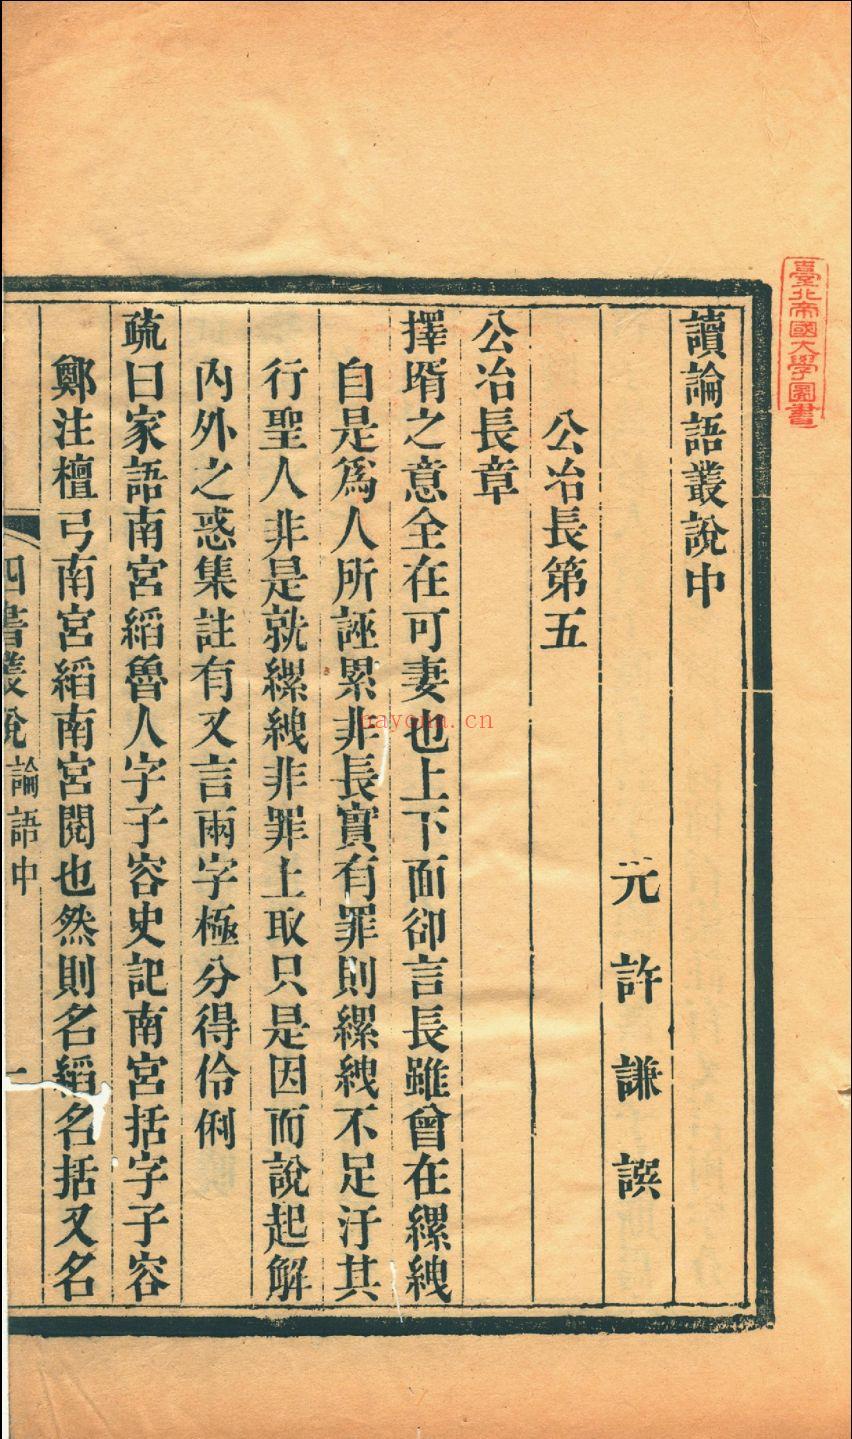 讀論語叢說中
元許謙譔
公冶長第五
公冶長章
擇壻之意全在可妻也上下面卻言長雖曾在縲絏
自是爲人所誣累非長實有罪則縲絏不足汙其
行聖人非是就縲絏非罪上取只是因而說起解
內外之惑集註有又言兩字極分得伶俐
疏曰家語南宮縚魯人字子容史記南宮括字子容
鄭注檀弓南宮縚南宮閱也然則名縚名括又名
四書叢說 論語中 一
臺北帝國大學圖書